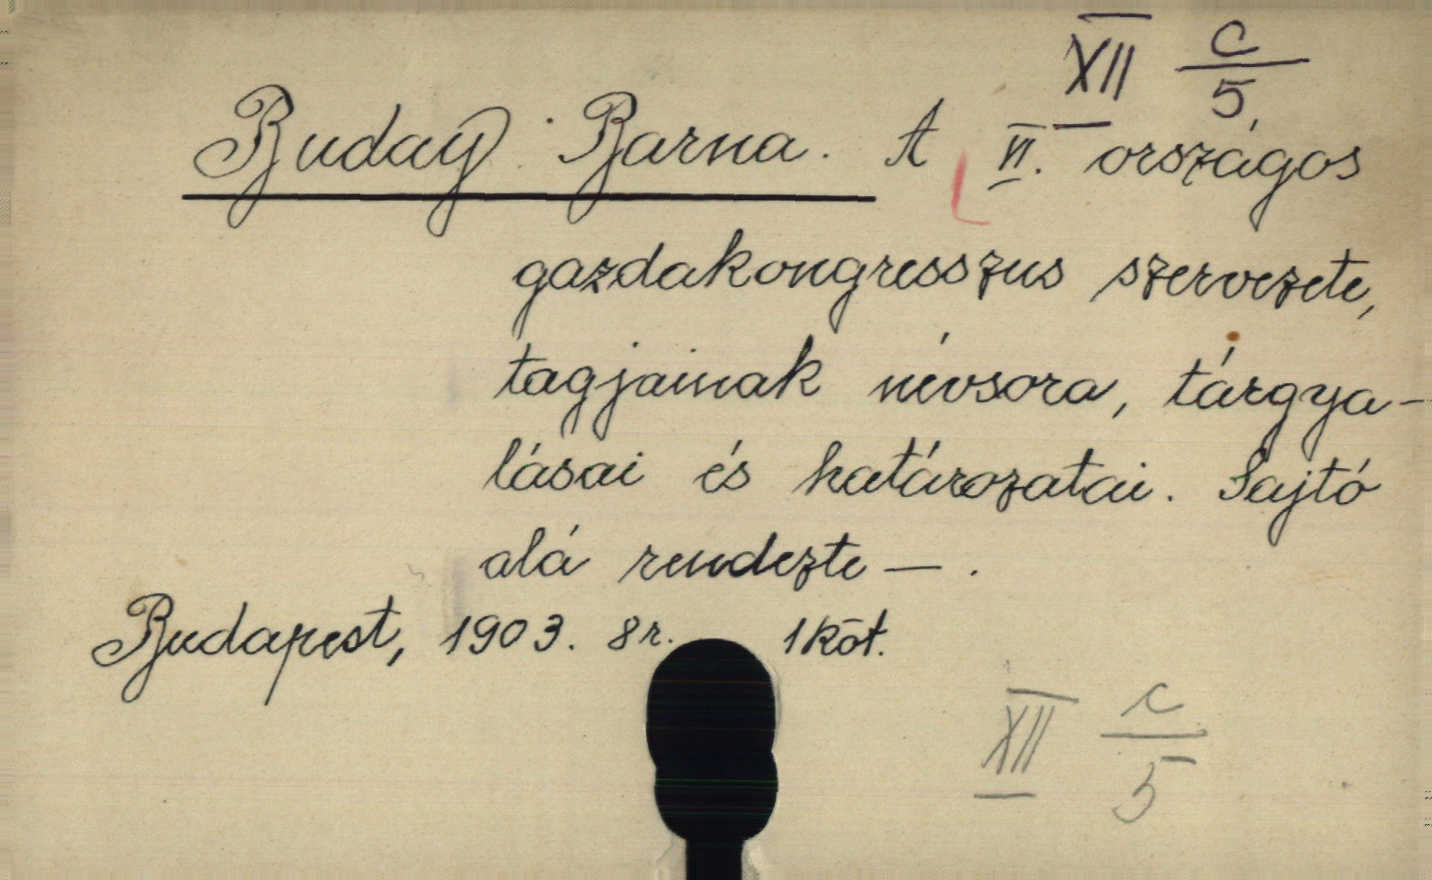 XII c/5
Buday Barna. A VI. országos
gazdakongresszus szervezete,
tagjainak névsora, tárgya-
lásai és határozatai. Sajtó
alá rendezte — .
Budapest, 1903. 8r. 1 köt.
XII c/5